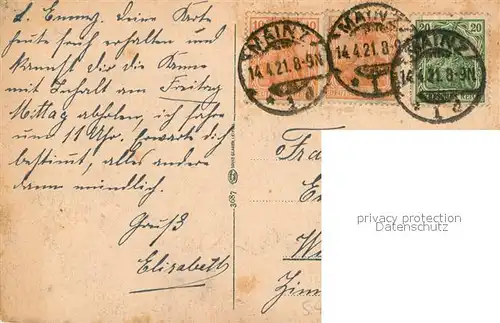 L. Emmy, deine Karte
heute früh erhalten und
kannst dir die Kanne
mit Inhalt am Freitag
Mittag abholen, ich fahre
um 11 Uhr. Erwarte dich
bestimt, alles andere
dann mündlich.
Gruß
Elisabeth
3687
10
10
MAINZ
14.4.21.8-9N
* 1 d
MAINZ
14.4.21.8-9N
* 1
20
20
MAINZ
14.4.21.8-9N
* 1 d
Fra
W
Zim
privacy protection
Datenschutz